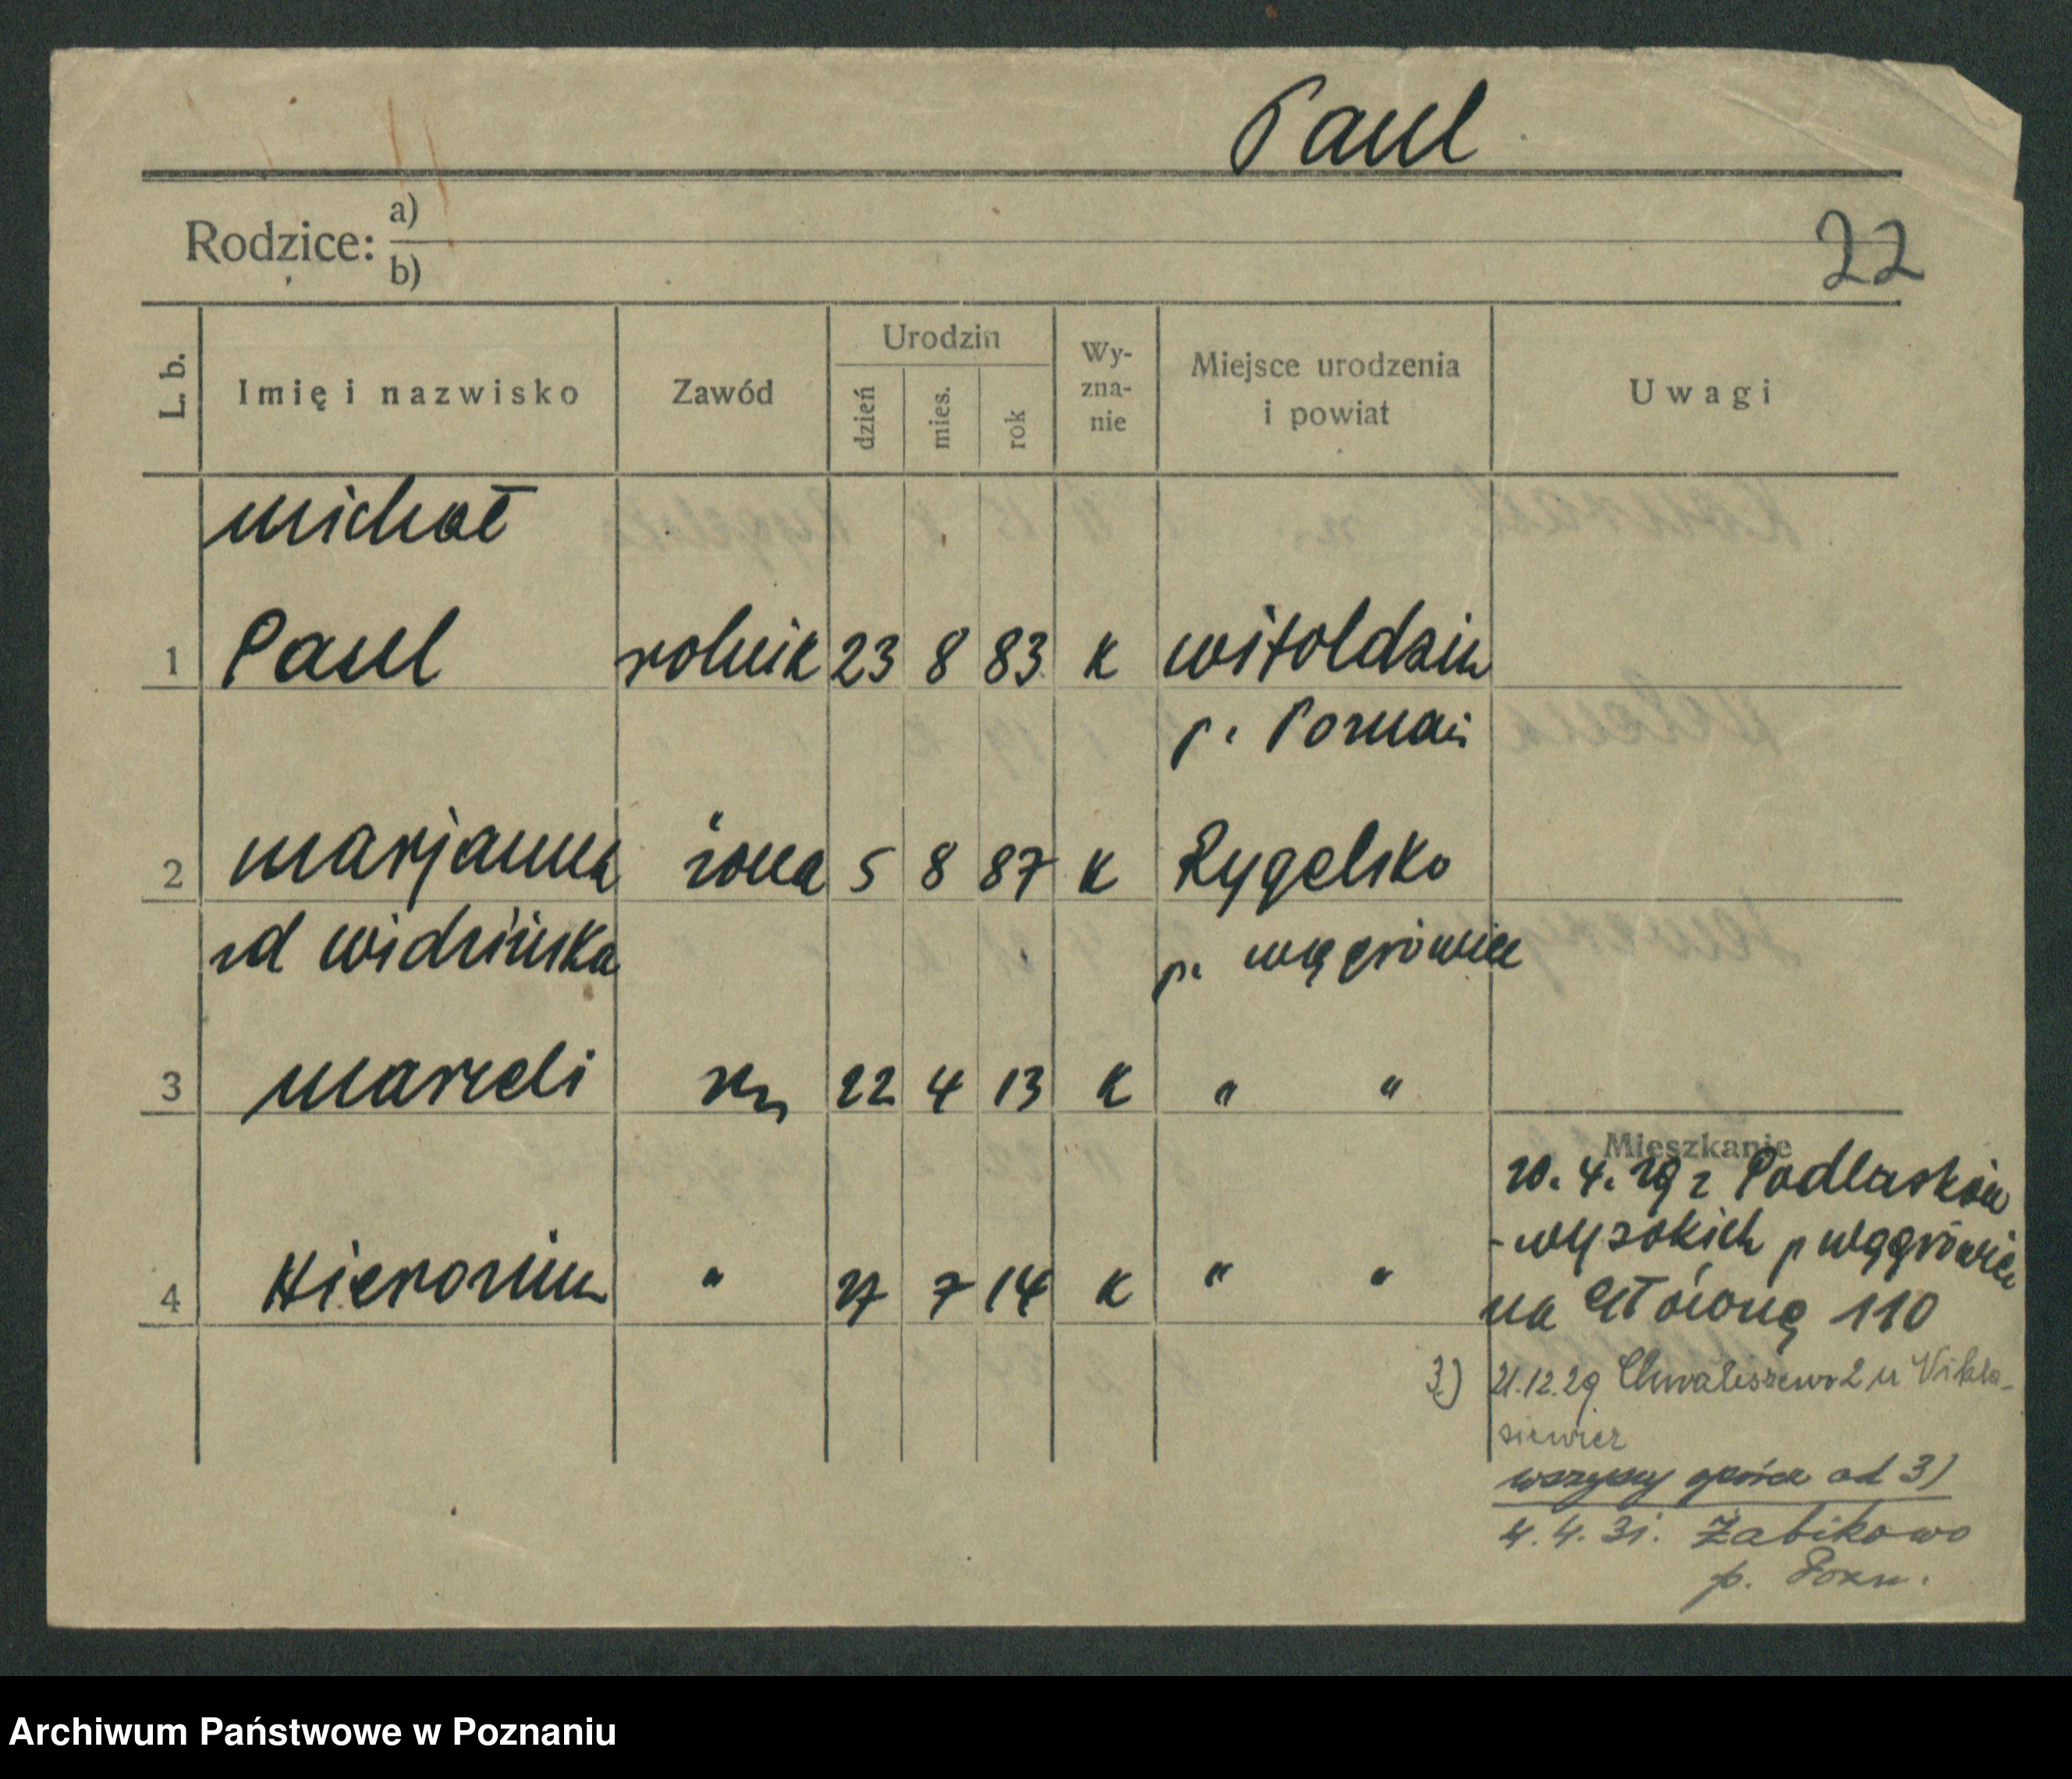 Paul
Rodzice: a)
b)
22
L. b. Imię i nazwisko Zawód Urodzin dzień mies. rok Wy-zna-nie Miejsce urodzenia i powiat Uwagi
Michał
1 Paul rolnik 23 8 83 K Witoldzin
p. Poznań
2 Marjanna żona 5 8 87 K Rygelsko
zd Widzińska p. Wągrówiec
3 Marceli sn 22 4 13 K " "
Mieszkanie
20. 4. 29 z Podlasków
- wysokich p Wągrówiec
4 Hieronim " 27 7 14 K " "
na Główną 110
3) 21.12.29 Chwaliszewo 2 u Wikła-
siewicz
wszyscy oprócz od 3)
4. 4. 31. Żabikowo
p. Pozn.
Archiwum Państwowe w Poznaniu